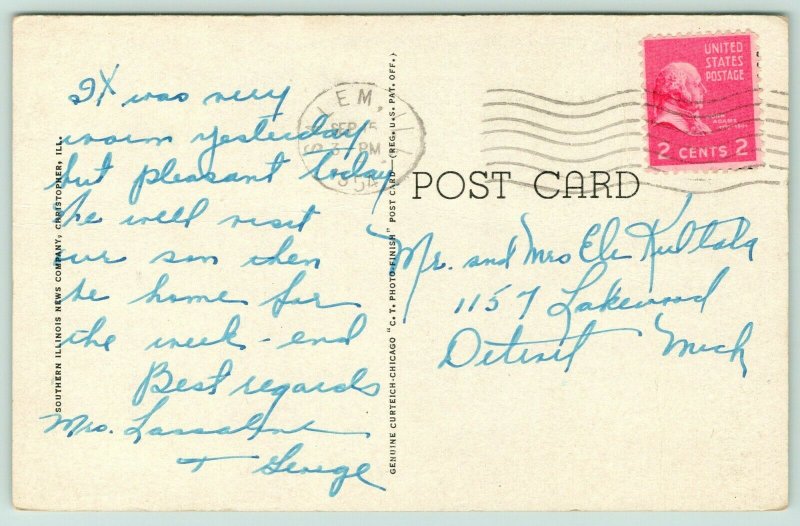 It was very
warm yesterday
but pleasant today
we will visit
our son then
be home for
the week-end
Best regards
Mrs.
+ George
SOUTHERN ILLINOIS NEWS COMPANY, CHRISTOPHER, ILL.
GENUINE CURTEICH-CHICAGO "C. T. PHOTO-FINISH" POST CARD—(REG. U. S. PAT. OFF.)
SEP
PM
POST CARD
UNITED
STATES
POSTAGE
2 CENTS 2
Mr. and Mrs
1157 Lakewood
Detroit Mich